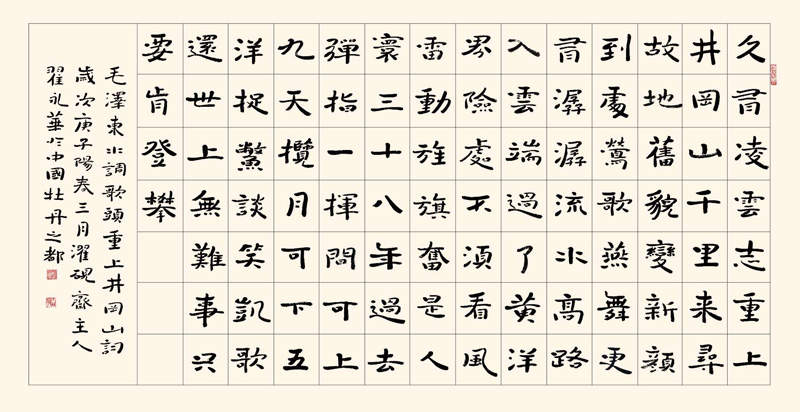 久有凌雲志重上
井岡山千里来尋
故地舊貌變新顔
到處鶯歌燕舞更
有潺潺流水高路
入雲端過了黄洋
界險處不須看風
雷動旌旗奮是人
寰三十八年過去
彈指一揮間可上
九天攬月可下五
洋捉鱉談笑凱歌
還世上無難事只
要肯登攀
毛澤東水調歌頭重上井岡山詞
歲次庚子陽春三月濯硯齋主人
翟礼華於中國牡丹之都